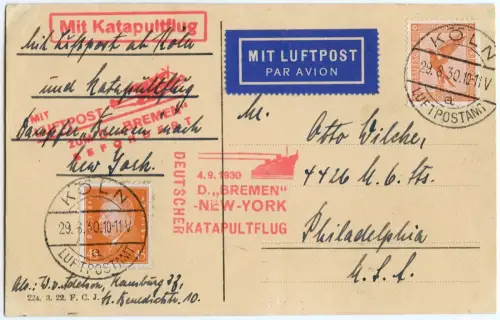 Mit Katapultflug
Mit Luftpost ab Köln
und Katapultflug
Dampfer "Bremen" nach
New York.
MIT
LUFTPOST
ZUM "BREMEN"
BEFÖRDERT
MIT LUFTPOST
PAR AVION
KÖLN
29.8.30.10-11V
a
LUFTPOSTAMT
DEUTSCHER
4.9.1930
D. „BREMEN"
-NEW-YORK
KATAPULTFLUG
Mr.
Otto Wilche,
4426 N. 6. Sts.
Philadelphia
U.S.A.
KÖLN
29.8.30.10-11V
a
LUFTPOSTAMT
15
Abs: Hamburg 37,
St. Benedictstr. 10.
224. 3. 22. F. C. J.